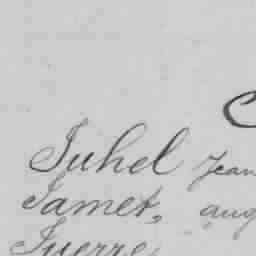 Juhel Jean
Jamet, aug
Juerre